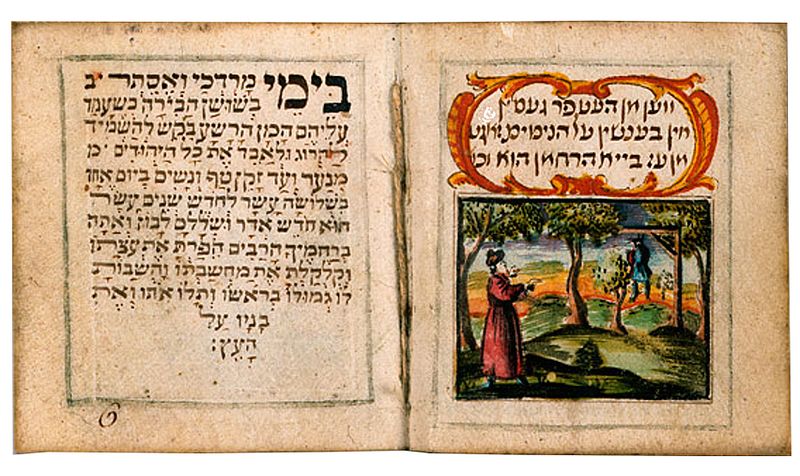 ווען מן העט פר געסין
אין בענשין על הניסים זאגט
מן ען בייא הרחמן הוא וכו
בימי מרדכי ואסתר ב
בשושן הבירה כשעמד
עליהם המן הרשע בקש להשמיד
להרוג ולאבד את כל היהודים מ
מנער ועד זקן טף ונשים ביום אחד
בשלושה עשר לחדש שנים עשר
הוא חדש אדר ושללם לבוז ואתה
ברחמיך הרבים הפרת את עצתו
וקלקלת את מחשבתו והשבות
לו גמולו בראשו ותלו אתו ואת
בניו על
העץ:
6